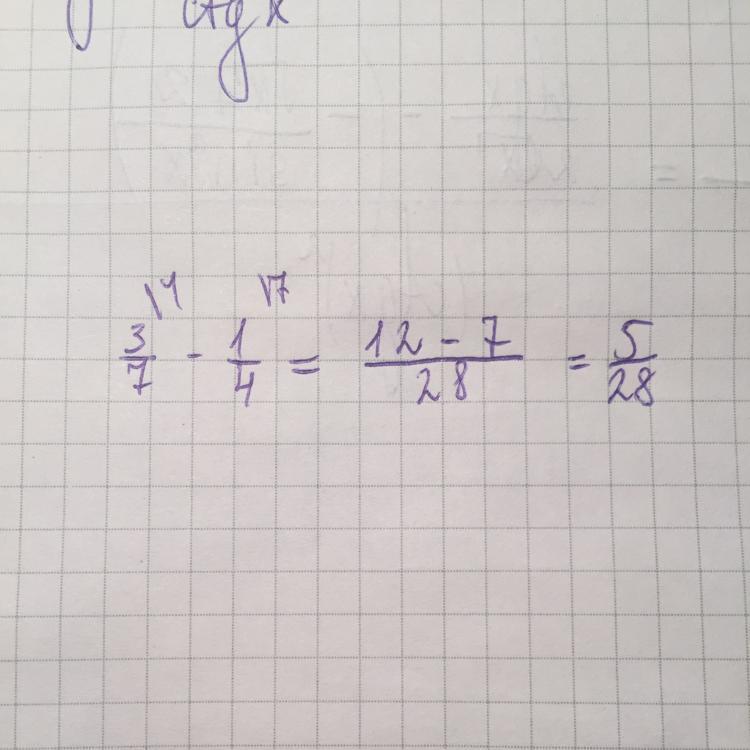 ctg x
\4 \7
3/7 - 1/4 = (12 - 7)/28 = 5/28